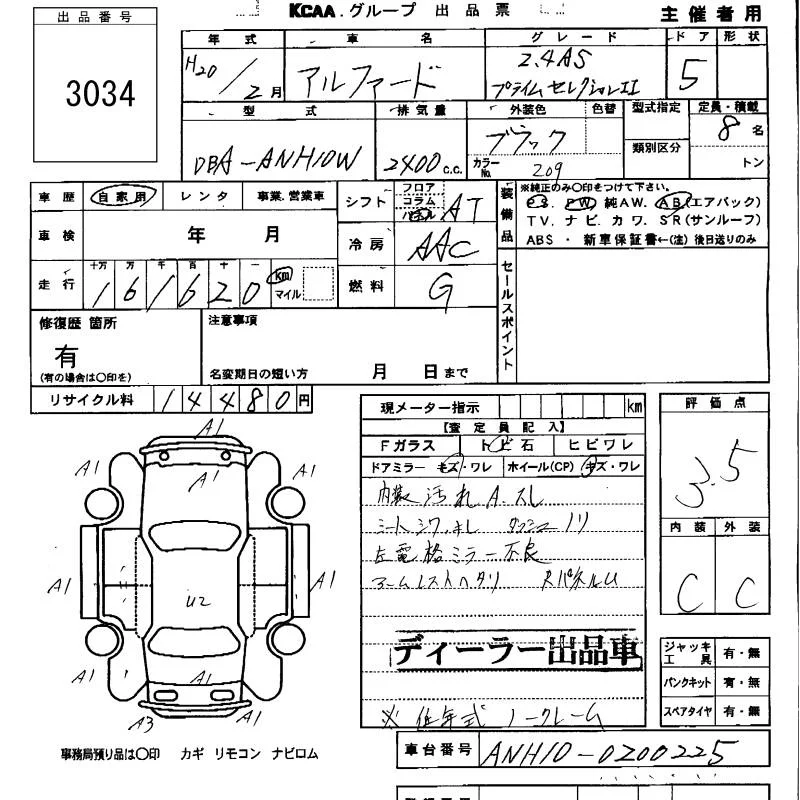 出品番号 KCAA.グループ 出品票 主催者用
3034
年式 車名 グレード ドア 形状
H20/2月 アルファード 2.4AS プライムセレクションII 5
型式 排気量 外装色 色替 型式指定 定員・積載
DBA-ANH10W 2400c.c. ブラック カラーNo. 209 類別区分 8名 トン
車歴 自家用 レンタ 事業.営業車 シフト フロア コラム パネル AT
装備品 ※純正のみ〇印をつけて下さい。
P.S. PW 純AW. AB(エアバック)
TV. ナビ. カワ. SR(サンルーフ)
ABS ・ 新車保証書←(注)後日送りのみ
車検 年 月 冷房 AAC
走行 十万 万 千 百 十 一 161620 km マイル 燃料 G
セールスポイント
修復歴 箇所 注意事項
有
(有の場合は〇印を) 名変期日の短い方 月 日まで
リサイクル料 14480円
現メーター指示 km
【査定員記入】
Fガラス トビ石 ヒビワレ
ドアミラー キズ・ワレ ホイール(CP) キズ・ワレ
内装汚れ A.スレ
シートシワ,キレ ダッシュノリ
左電格ミラー不良
アームレストヘタリ RパネルU
ディーラー出品車
※低年式ノークレーム
車台番号 ANH10-0200225
評価点
3.5
内装 外装
C C
ジャッキ工具 有・無
パンクキット 有・無
スペアタイヤ 有・無
A1
A1 A1 A1
A1 U2 A1
A1 A1 A1
A3 A1
事務局預り品は〇印 カギ リモコン ナビロム